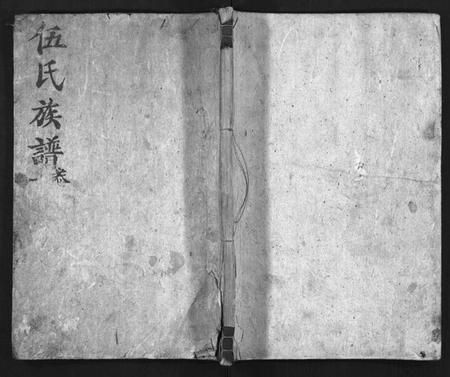 伍氏族譜
卷一